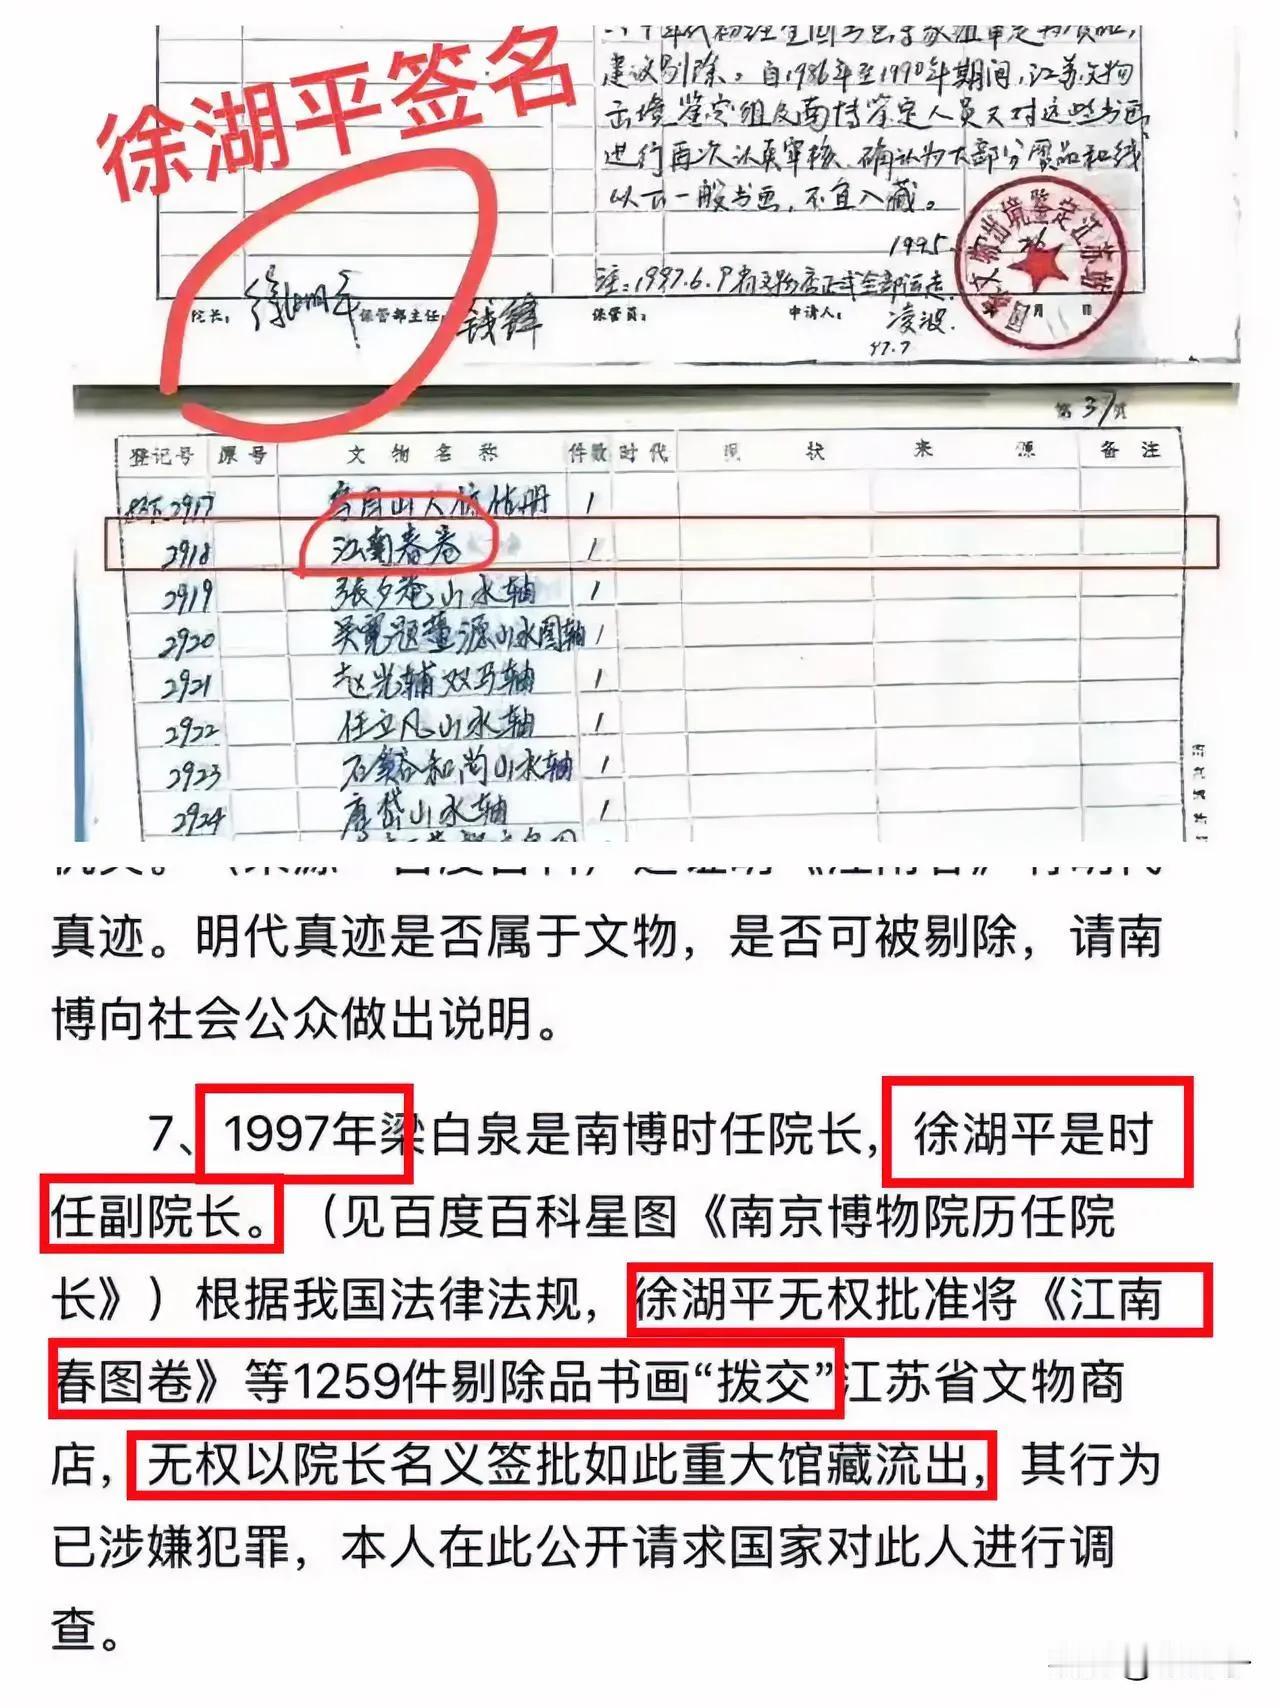 徐湖平签名
建议剔除。自1986年至1990年期间,江苏文物
出境鉴定组及南博鉴定人员又对这些书画
进行再次认真审核,确认为大部分赝品和线
以下一般书画,不宜入藏。
1995.
注:1997.6.9
月 日
院长: 徐湖平 保管部主任: 钱锋 保管员: 申请人: 凌波.
97.7
第 37 页
登记号 原号 文物名称 件数 时代 现状 来源 备注
2917 1
2918 江南春卷 1
2919 張夕菴山水轴 1
2920 吴寛题董源山水图轴 1
2921 赵光辅双马轴 1
2922 任立凡山水轴 1
2923 石谿和尚山水轴 1
2924 唐岱山水轴 1
真迹。明代真迹是否属于文物,是否可被剔除,请南
博向社会公众做出说明。
7、1997年梁白泉是南博时任院长,徐湖平是时
任副院长。(见百度百科星图《南京博物院历任院
长》)根据我国法律法规,徐湖平无权批准将《江南
春图卷》等1259件剔除品书画“拨交”江苏省文物商
店,无权以院长名义签批如此重大馆藏流出,其行为
已涉嫌犯罪,本人在此公开请求国家对此人进行调
查。